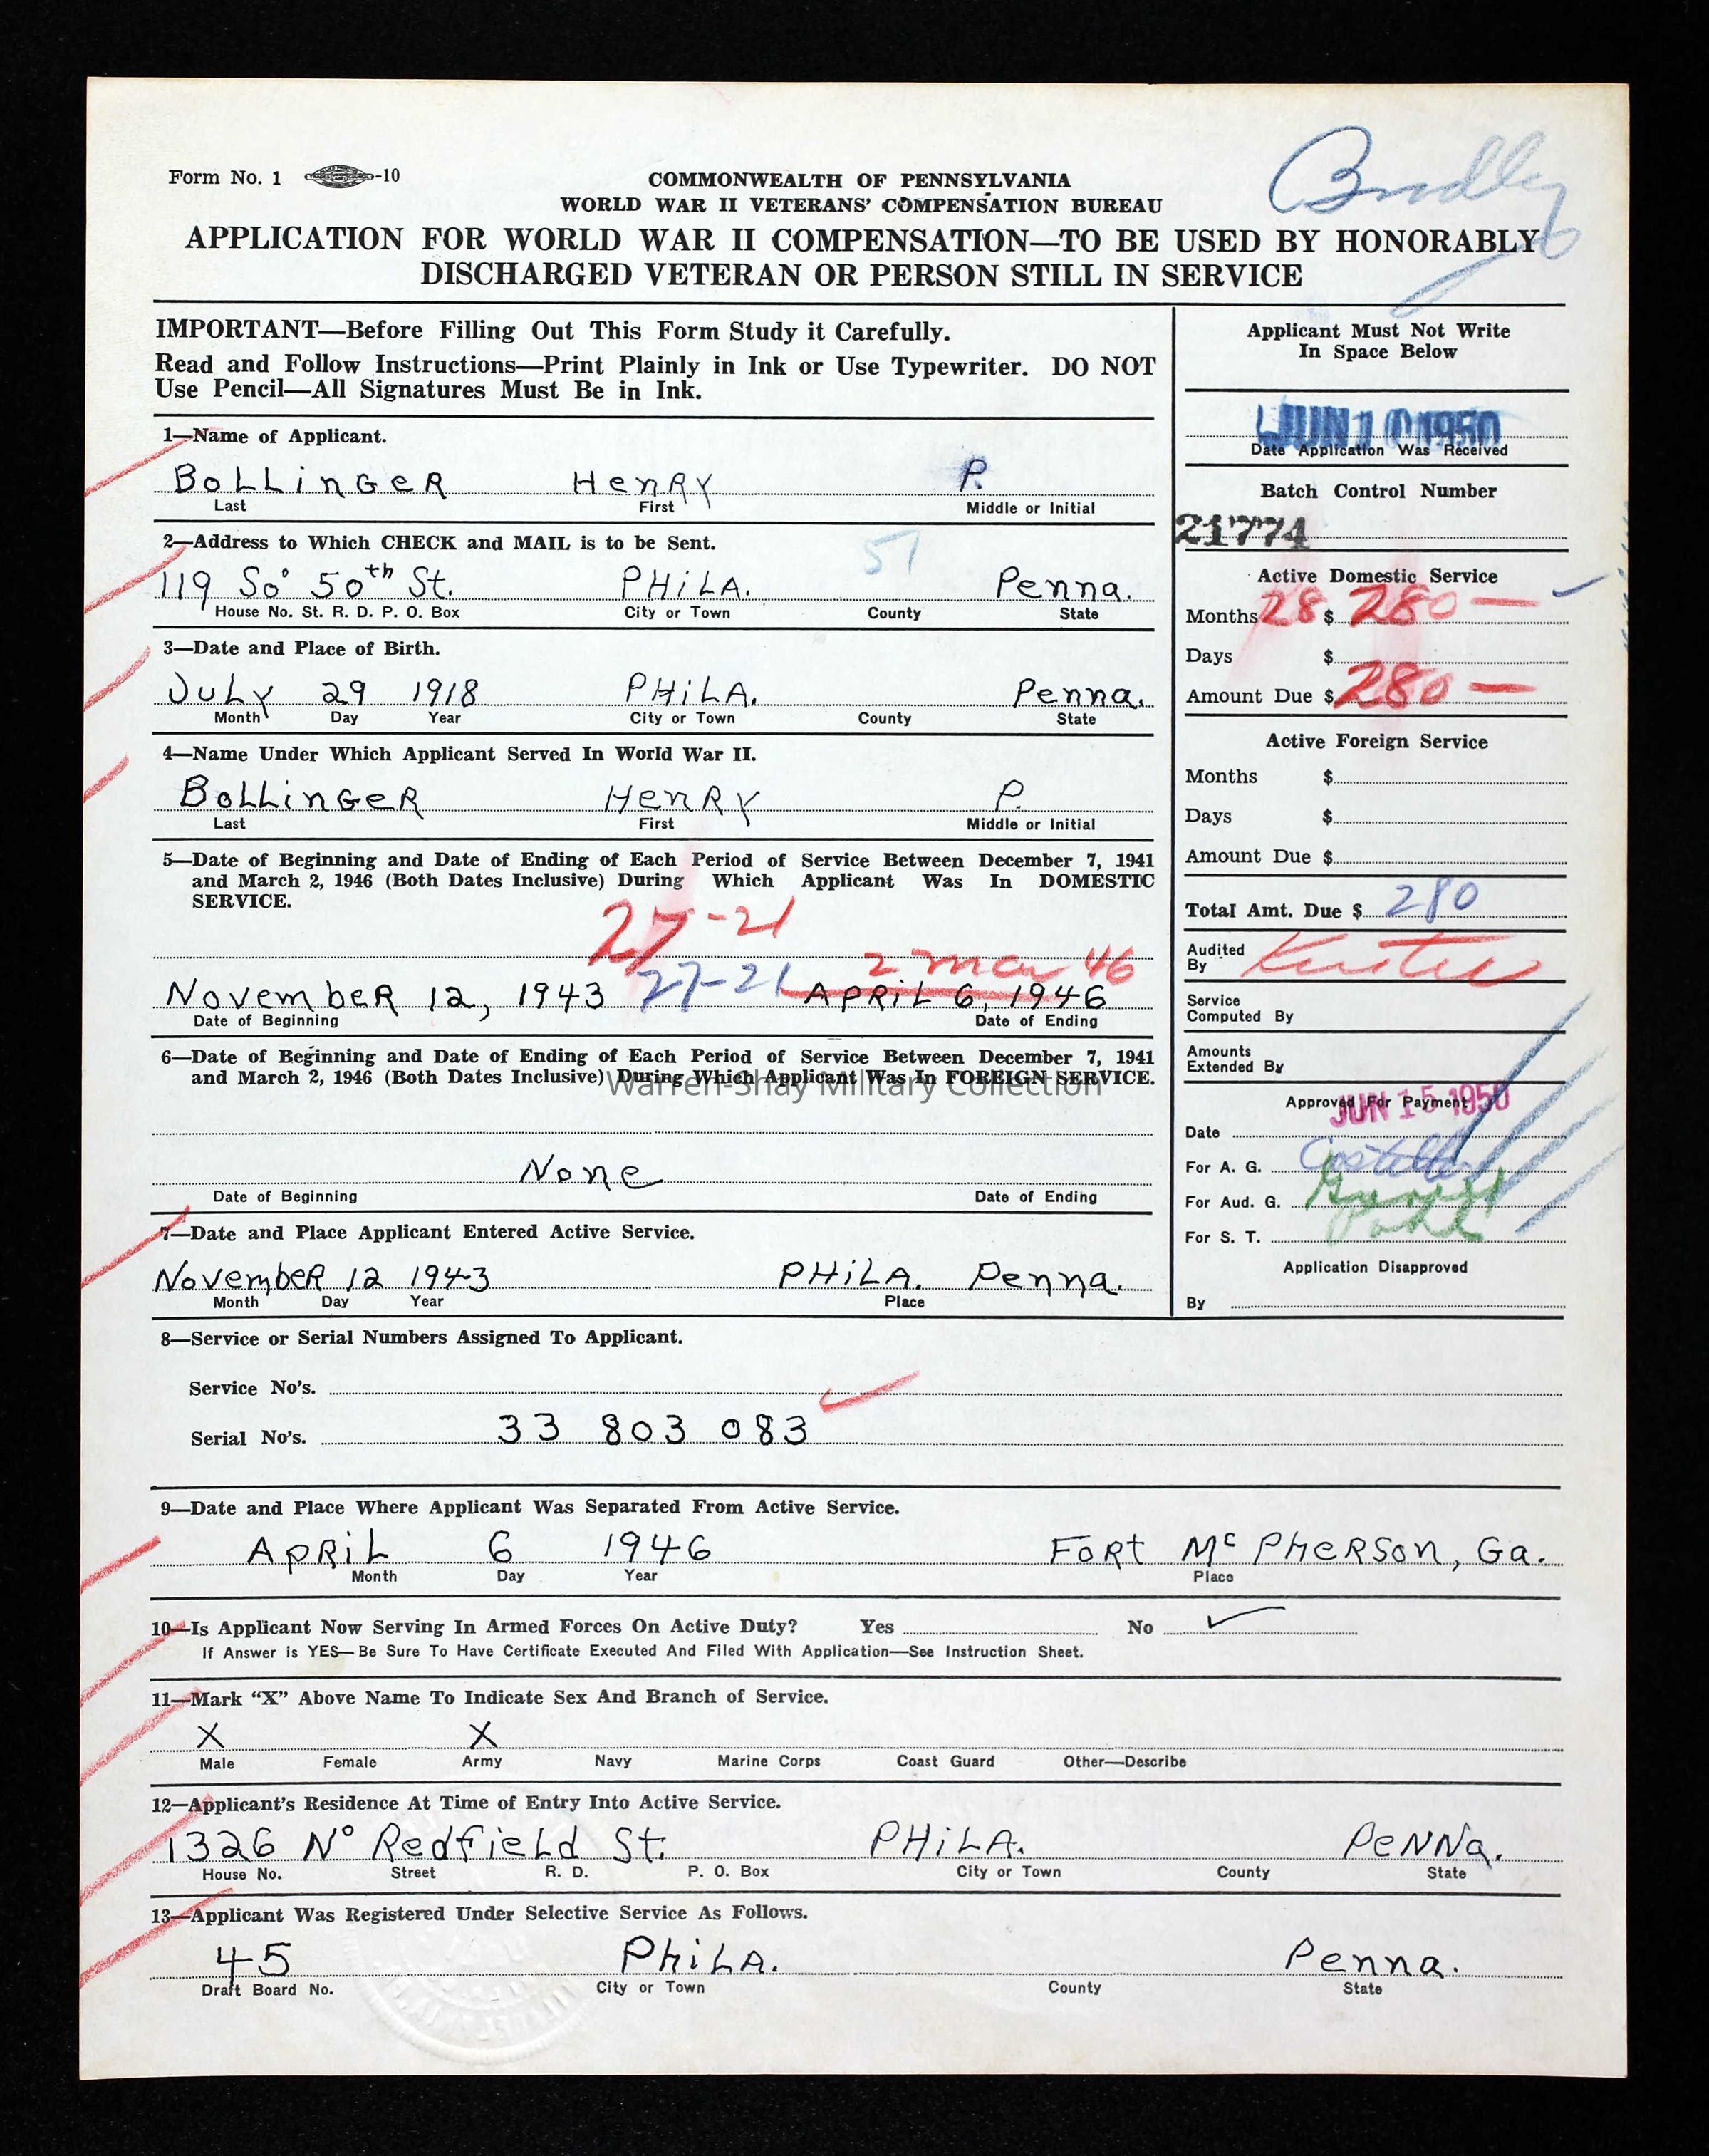 Form No. 1 -10
Bradley
COMMONWEALTH OF PENNSYLVANIA
WORLD WAR II VETERANS' COMPENSATION BUREAU
APPLICATION FOR WORLD WAR II COMPENSATION—TO BE USED BY HONORABLY
DISCHARGED VETERAN OR PERSON STILL IN SERVICE
IMPORTANT—Before Filling Out This Form Study it Carefully.
Read and Follow Instructions—Print Plainly in Ink or Use Typewriter. DO NOT
Use Pencil—All Signatures Must Be in Ink.
1—Name of Applicant.
BOLLINGER HENRY P.
Last First Middle or Initial
2—Address to Which CHECK and MAIL is to be Sent.
51
119 So 50th St. PHILA. Penna.
House No. St. R. D. P. O. Box City or Town County State
3—Date and Place of Birth.
JULY 29 1918 PHILA. Penna.
Month Day Year City or Town County State
4—Name Under Which Applicant Served In World War II.
BOLLINGER HENRY P.
Last First Middle or Initial
5—Date of Beginning and Date of Ending of Each Period of Service Between December 7, 1941
and March 2, 1946 (Both Dates Inclusive) During Which Applicant Was In DOMESTIC
SERVICE.
27-21
2 Mar 46
NovembeR 12, 1943 27-21 APRiL 6, 1946
Date of Beginning Date of Ending
6—Date of Beginning and Date of Ending of Each Period of Service Between December 7, 1941
and March 2, 1946 (Both Dates Inclusive) During Which Applicant Was In FOREIGN SERVICE.
Warren-Shay Military Collection
None
Date of Beginning Date of Ending
7—Date and Place Applicant Entered Active Service.
NovembeR 12 1943 PHILA. Penna.
Month Day Year Place
Applicant Must Not Write
In Space Below
JUN 10 1950
Date Application Was Received
Batch Control Number
21774
Active Domestic Service
Months 28 $ 280 —
Days $
Amount Due $ 280 —
Active Foreign Service
Months $
Days $
Amount Due $
Total Amt. Due $ 280
Audited
By
Service
Computed By
Amounts
Extended By
Approved For Payment
JUN 15 1950
Date
For A. G. Costello
For Aud. G.
For S. T.
Application Disapproved
By
8—Service or Serial Numbers Assigned To Applicant.
Service No's.
Serial No's. 33 803 083
9—Date and Place Where Applicant Was Separated From Active Service.
APRiL 6 1946 FORt Mc PHERSON, Ga.
Month Day Year Place
10—Is Applicant Now Serving In Armed Forces On Active Duty? Yes No ✓
If Answer is YES—Be Sure To Have Certificate Executed And Filed With Application—See Instruction Sheet.
11—Mark "X" Above Name To Indicate Sex And Branch of Service.
X X
Male Female Army Navy Marine Corps Coast Guard Other—Describe
12—Applicant's Residence At Time of Entry Into Active Service.
1326 No Redfield St. PHILA. PENNa.
House No. Street R. D. P. O. Box City or Town County State
13—Applicant Was Registered Under Selective Service As Follows.
45 PhiLA. Penna.
Draft Board No. City or Town County State